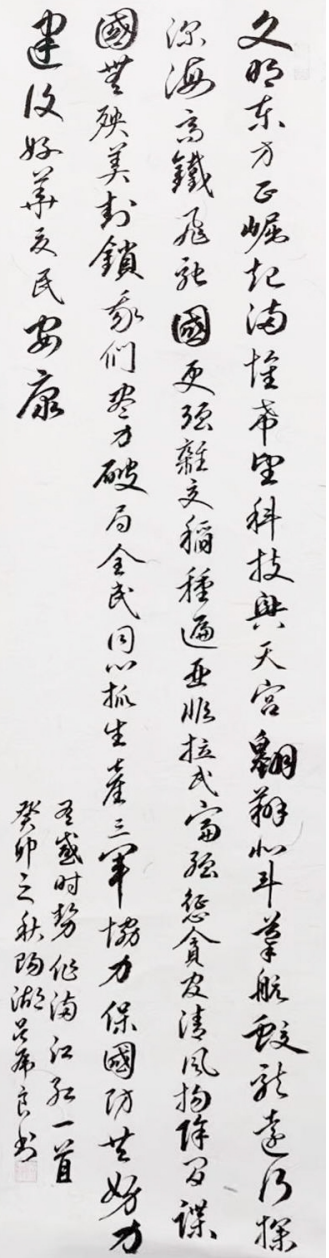 文明东方正崛起满怀希望科技兴天宫翱翔北斗导航蛟龙远行探
深海高铁飞驰國更强雜交稻種遍亚非拉民富强惩贪官清风扬除间諜
國无殃美封鎖我们尽力破局全民同心抓生產三军协力保國防共努力
建设好华夏民安康
有感时势作满江红一首
癸卯之秋阳湖吴希良书